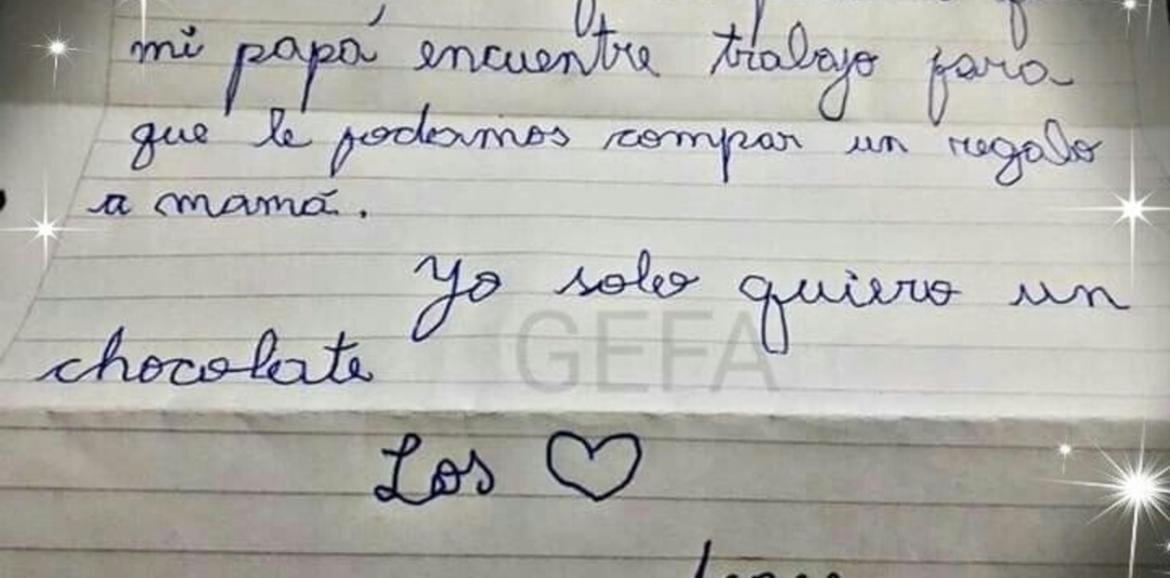 mi papá encuentre trabajo para
que le podermos compar un regalo
a mamá.
Yo solo quiero un
chocolate
GEFA
Los ♡